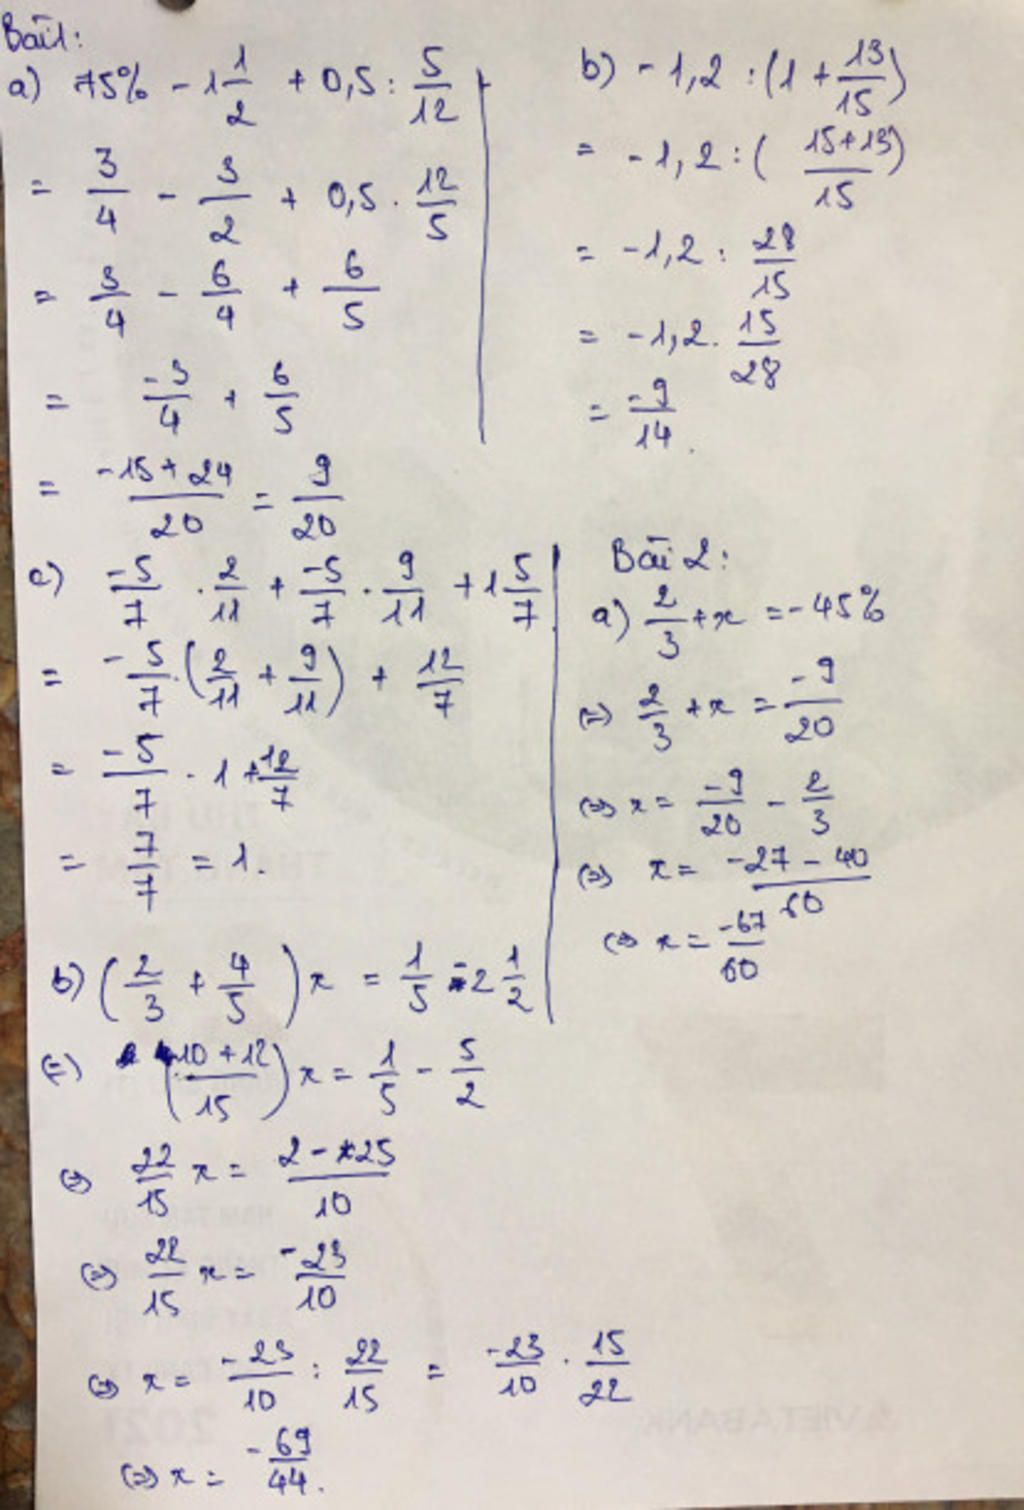 Bài 1:
a) 75% - 1 1/2 + 0,5 : 5/12
= 3/4 - 3/2 + 0,5 . 12/5
= 3/4 - 6/4 + 6/5
= -3/4 + 6/5
= (-15 + 24)/20 = 9/20
b) -1,2 : (1 + 13/15)
= -1,2 : ((15+13)/15)
= -1,2 : 28/15
= -1,2 . 15/28
= -9/14.
c) -5/7 . 2/11 + -5/7 . 9/11 + 1 5/7
= -5/7 . (2/11 + 9/11) + 12/7
= -5/7 . 1 + 12/7
= 7/7 = 1.
Bài 2:
a) 2/3 + x = -45%
(=) 2/3 + x = -9/20
(=) x = -9/20 - 2/3
(=) x = (-27 - 40)/60
(=) x = -67/60
b) (2/3 + 4/5) x = 1/5 - 2 1/2
(=) ((10 + 12)/15) x = 1/5 - 5/2
(=) 22/15 x = (2 - 25)/10
(=) 22/15 x = -23/10
(=) x = -23/10 : 22/15 = -23/10 . 15/22
(=) x = -69/44.
2021
VIETABANK